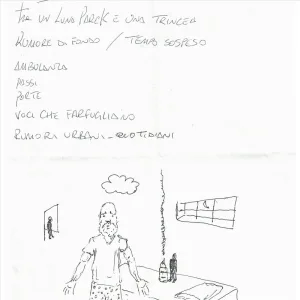 TRA UN LUNA PARCK E UNA TRINCEA
RUMORE DI FONDO / TEMPO SOSPESO
AMBULANZA
PASSI
PORTE
VOCI CHE FARFUGLIANO
RUMORI URBANI - QUOTIDIANI